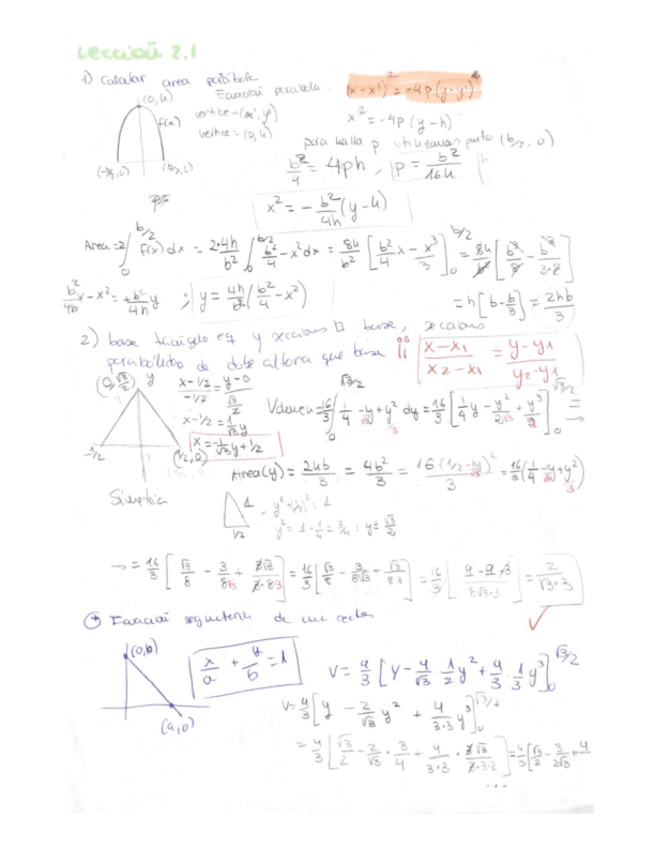 Lección 2.1
1) Calcular area parábola
Ecuación parabola (x-x')² = -4p(y-y')
(0,h) vertice=(x',y') x² = -4p(y-h)
f(x) vertice=(0,h)
para halla p utilizamos punto (b/2, 0)
(-b/2,0) (b/2,0) b²/4 = 4ph, p = b²/16h
x² = - b²/4h (y-h)
Area = 2 ∫₀^{b/2} f(x) dx = 2·4h/b² ∫₀^{b/2} b²/4 - x² dx = 8h/b² [b²/4 x - x³/3]₀^{b/2} = 8h/b² [b³/8 - b³/3·8]
; y = 4h/b² (b²/4 - x²) = h[b - b/3] = 2hb/3
2) base triángulo eq y secciones base, secciones
de doble altura que base !! x-x1/x2-x1 = y-y1/y2-y1
(0, √3/2) y x-1/2/-1/2 = y-0/√3/2
x-1/2 = -1/√3 y
x = -1/√3 y + 1/2
Volumen = 16/3 ∫₀^{√3/2} 1/4 - y/√3 + y²/3 dy = 16/3 [1/4 y - y²/2√3 + y³/9]₀^{√3/2} = →
-1/2 (1/2,0)
Area(y) = 2hb/3 = 4b²/3 = 16(1/2 - 1y/√3)²/3 = 16/3 (1/4 - 1y/√3 + y²/3)
Simetria
1 y² + (1/2)² = 1
1/2 y² = 1 - 1/4 = 3/4 ; y = ± √3/2
→ = 16/3 [√3/8 - 3/8√3 + 3√3/9·8] = 16/3 [√3/8 - 3/8√3 + √3/8·3] = 16/3 [9-9+3/8√3·3] = 2/√3·3
Ecuación segmentaria de una recta
(0,b) x/a + y/b = 1
V = 4/3 [y - 4/√3 · 1/2 y² + 4/3 · 1/3 y³]₀^{√3/2}
(a,0) V = 4/3 [y - 2/√3 y² + 4/3·3 y³]₀^{√3/2}
= 4/3 [√3/2 - 2/√3 · 3/4 + 4/3·3 · 3√3/2·3·2] = 4/3 [√3/2 - 3/2√3 + 4
...